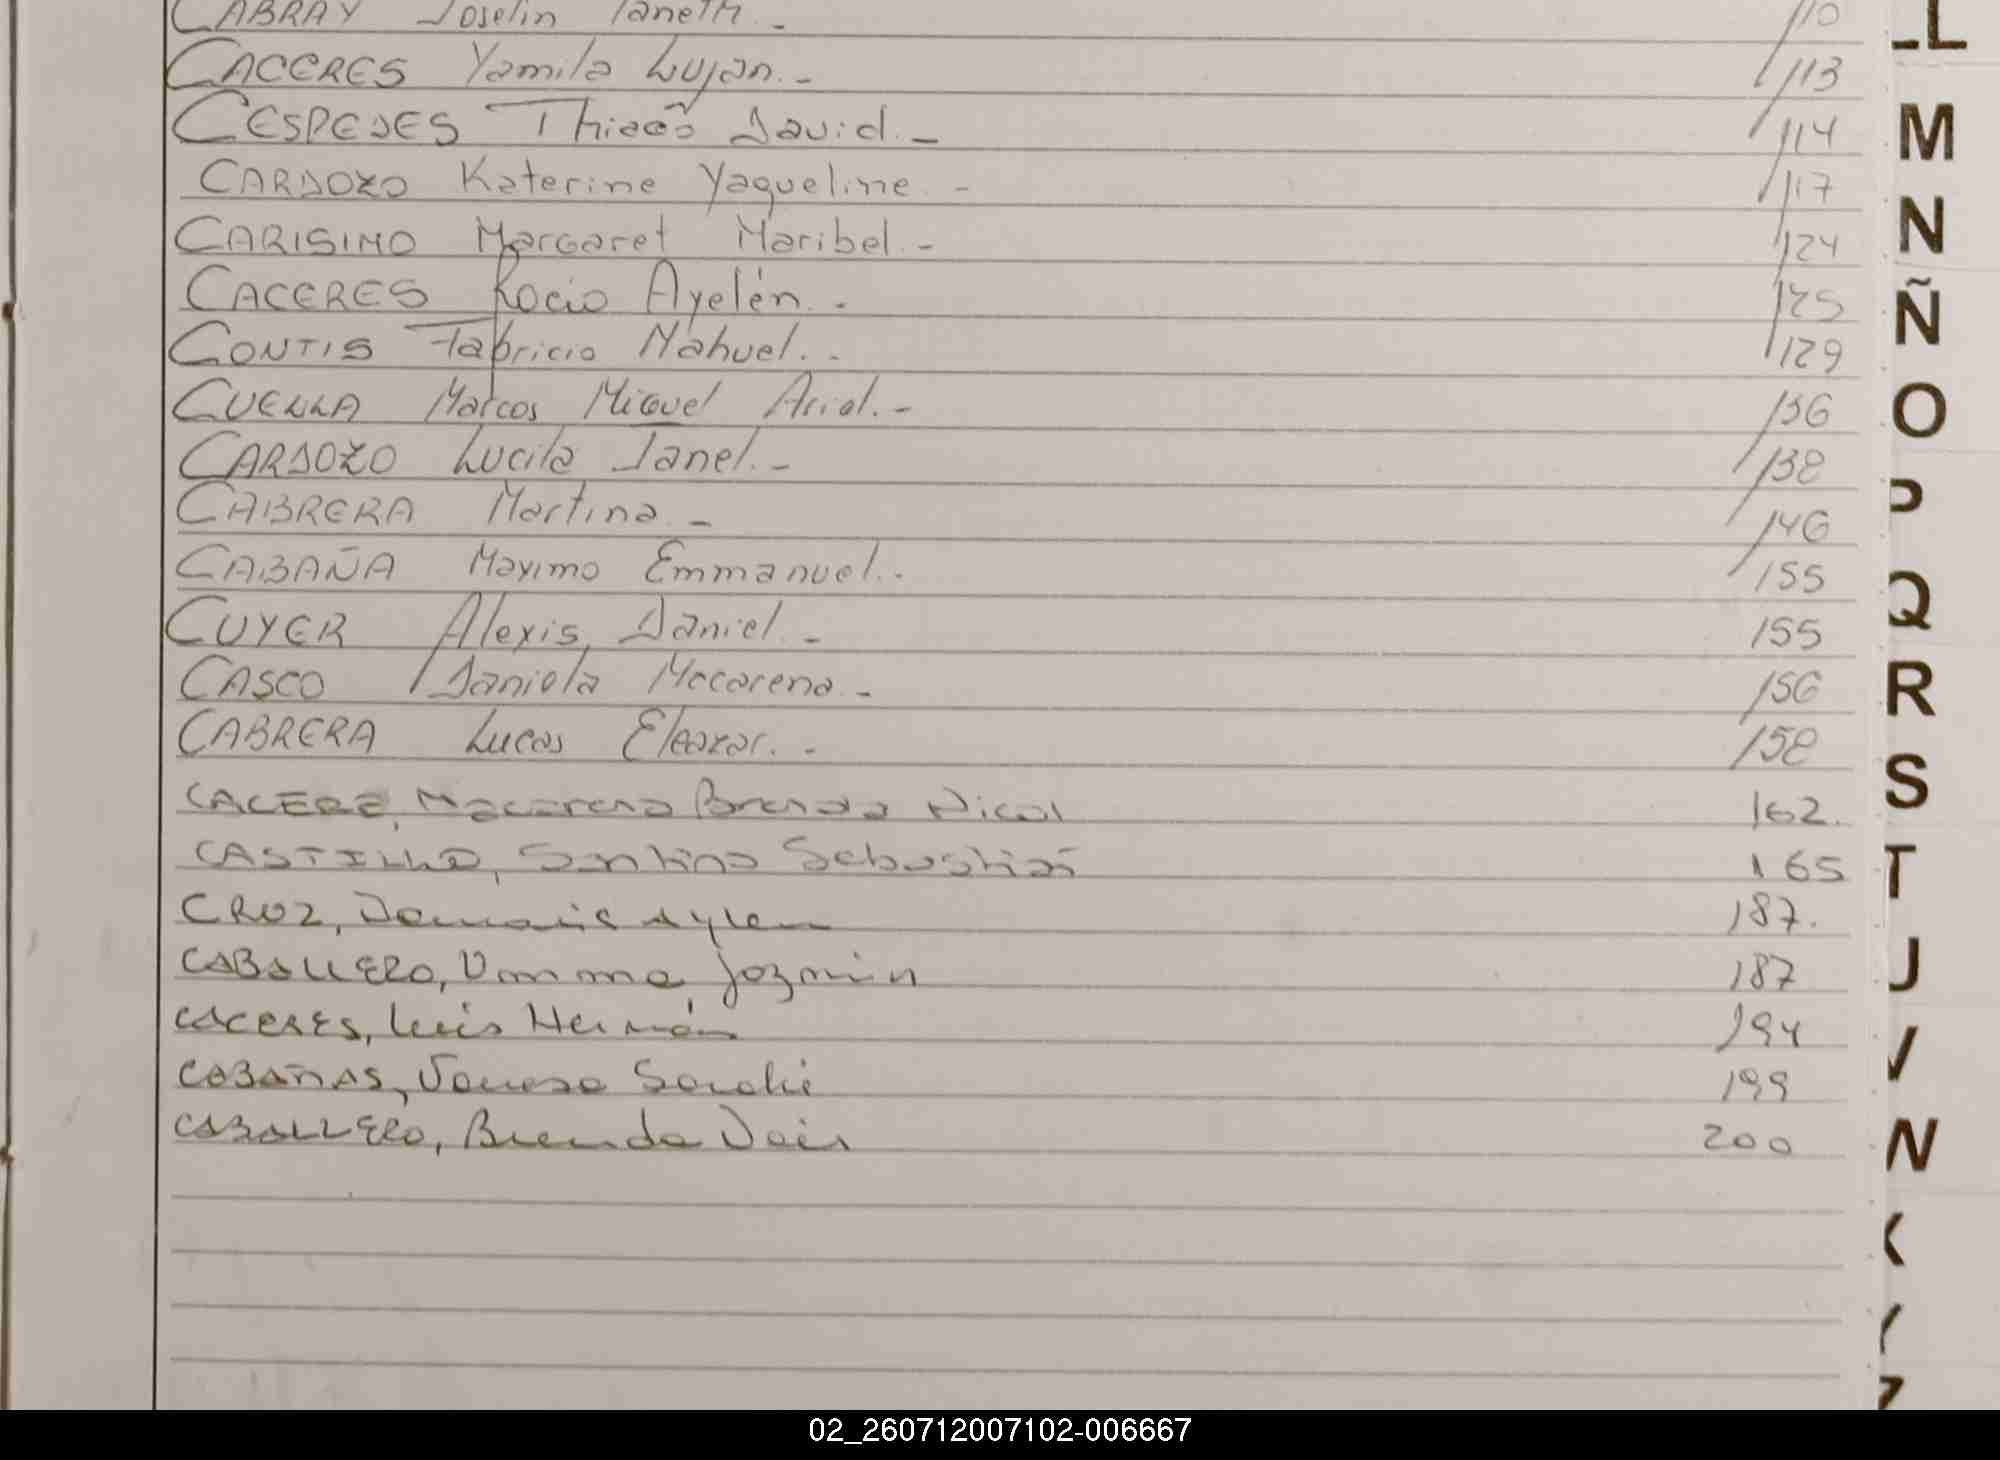 CABRAY Joselin Ianeth.- 110
CACERES Yamila Lujan.- 113
CESPEDES Thiago David.- 114
CARDOZO Katerine Yaqueline.- 117
CARISIMO Margaret Maribel.- 124
CACERES Rocio Ayelén.- 125
CONTIS Fabricio Nahuel.. 129
CUELLA Marcos Miguel Ariel.- 136
CARDOZO Lucila Janel.- 138
CABRERA Martina.- 146
CABAÑA Maximo Emmanuel.. 155
CUYER Alexis Daniel.- 155
CASCO Daniela Macarena.- 156
CABRERA Lucas Eleazar.- 158
CACERE, Macarena Brenda Nicol 162.
CASTILLO, Santino Sebastián 165
CRUZ, Aylen 187.
CABALLERO, Umma Jazmin 187
CACERES, Luis Hernán 194
CABAÑAS, 199
CABALLERO, Brenda 200
LL
M
N
Ñ
O
P
Q
R
S
T
U
V
W
X
Y
Z
02_260712007102-006667